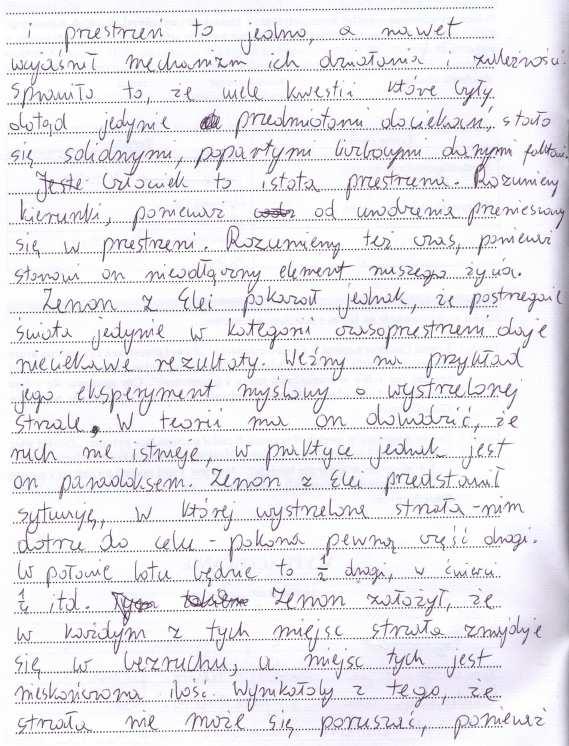 i przestrzeń to jedno, a nawet
wyjaśnił mechanizm ich działania i zależności.
Sprawiło to, że wiele kwestii które były
dotąd jedynie przedmiotami dociekań, stało
się solidnymi, popartymi liczbowymi danymi faktami.
Człowiek to istota przestrzenna. Rozumiemy
kierunki, ponieważ od urodzenia przemieszczamy
się w przestrzeni. Rozumiemy też czas, ponieważ
stanowi on nieodłączny element naszego życia.
Zenon z Elei pokazał jednak, że postrzeganie
świata jedynie w kategorii czasoprzestrzeni daje
nieciekawe rezultaty. Weźmy na przykład
jego eksperyment myślowy o wystrzelonej
strzale. W teorii ma on dowodzić, że
ruch nie istnieje, w praktyce jednak jest
on paradoksem. Zenon z Elei przedstawił
sytuację, w której wystrzelona strzała - nim
dotrze do celu - pokona pewną część drogi.
W połowie lotu będzie to 1/2 drogi, w ćwierci
1/4 itd. Zenon założył, że
w każdym z tych miejsc strzała znajduje
się w bezruchu, a miejsc tych jest
nieskończona ilość. Wynikałoby z tego, że
strzała nie może się poruszać, ponieważ